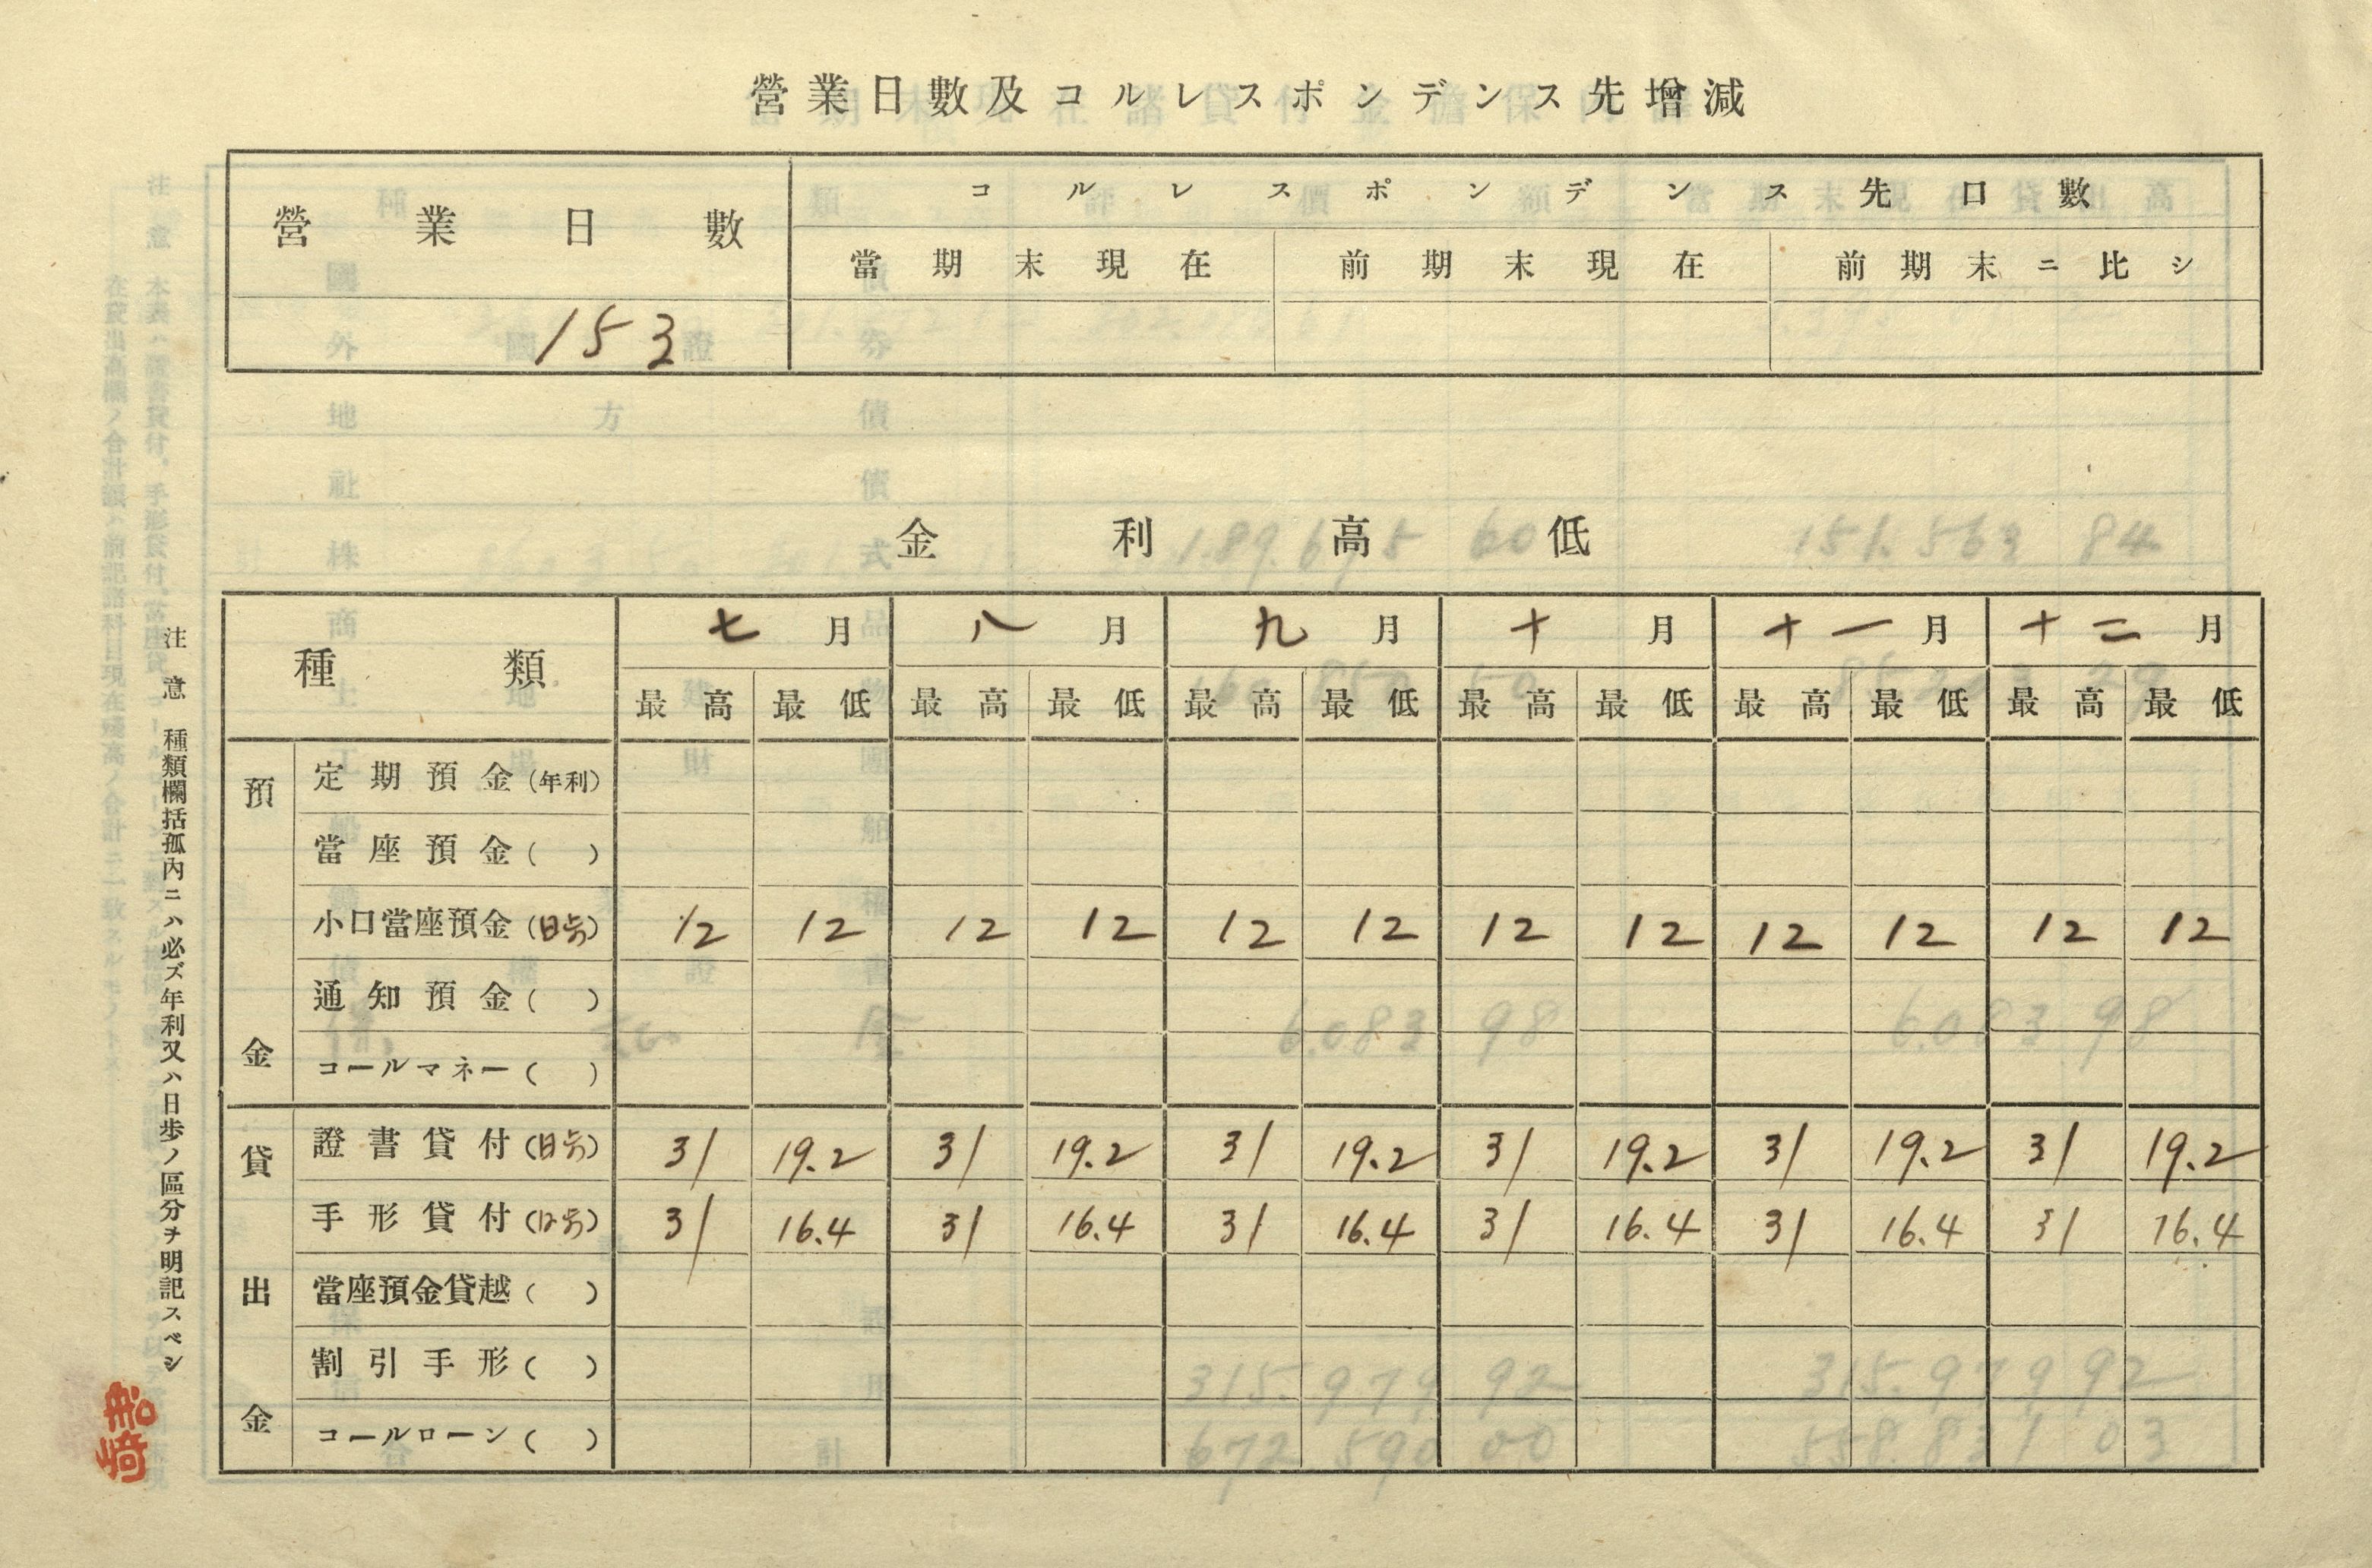 營業日數及コルレスポンデンス先增減
營業日數 コルレスポンデンス先口數
當期末現在 前期末現在 前期末ニ比シ
153
金利高低
種類 七月 八月 九月 十月 十一月 十二月
最高 最低 最高 最低 最高 最低 最高 最低 最高 最低 最高 最低
預金
定期預金(年利)
當座預金( )
小口當座預金(日歩) 12 12 12 12 12 12 12 12 12 12 12 12
通知預金( )
コールマネー( )
貸出金
證書貸付(日歩) 31 19.2 31 19.2 31 19.2 31 19.2 31 19.2 31 19.2
手形貸付(日歩) 31 16.4 31 16.4 31 16.4 31 16.4 31 16.4 31 16.4
當座預金貸越( )
割引手形( )
コールローン( )
注意 種類欄括孤內ニハ必ズ年利又ハ日歩ノ區分ヲ明記スベシ